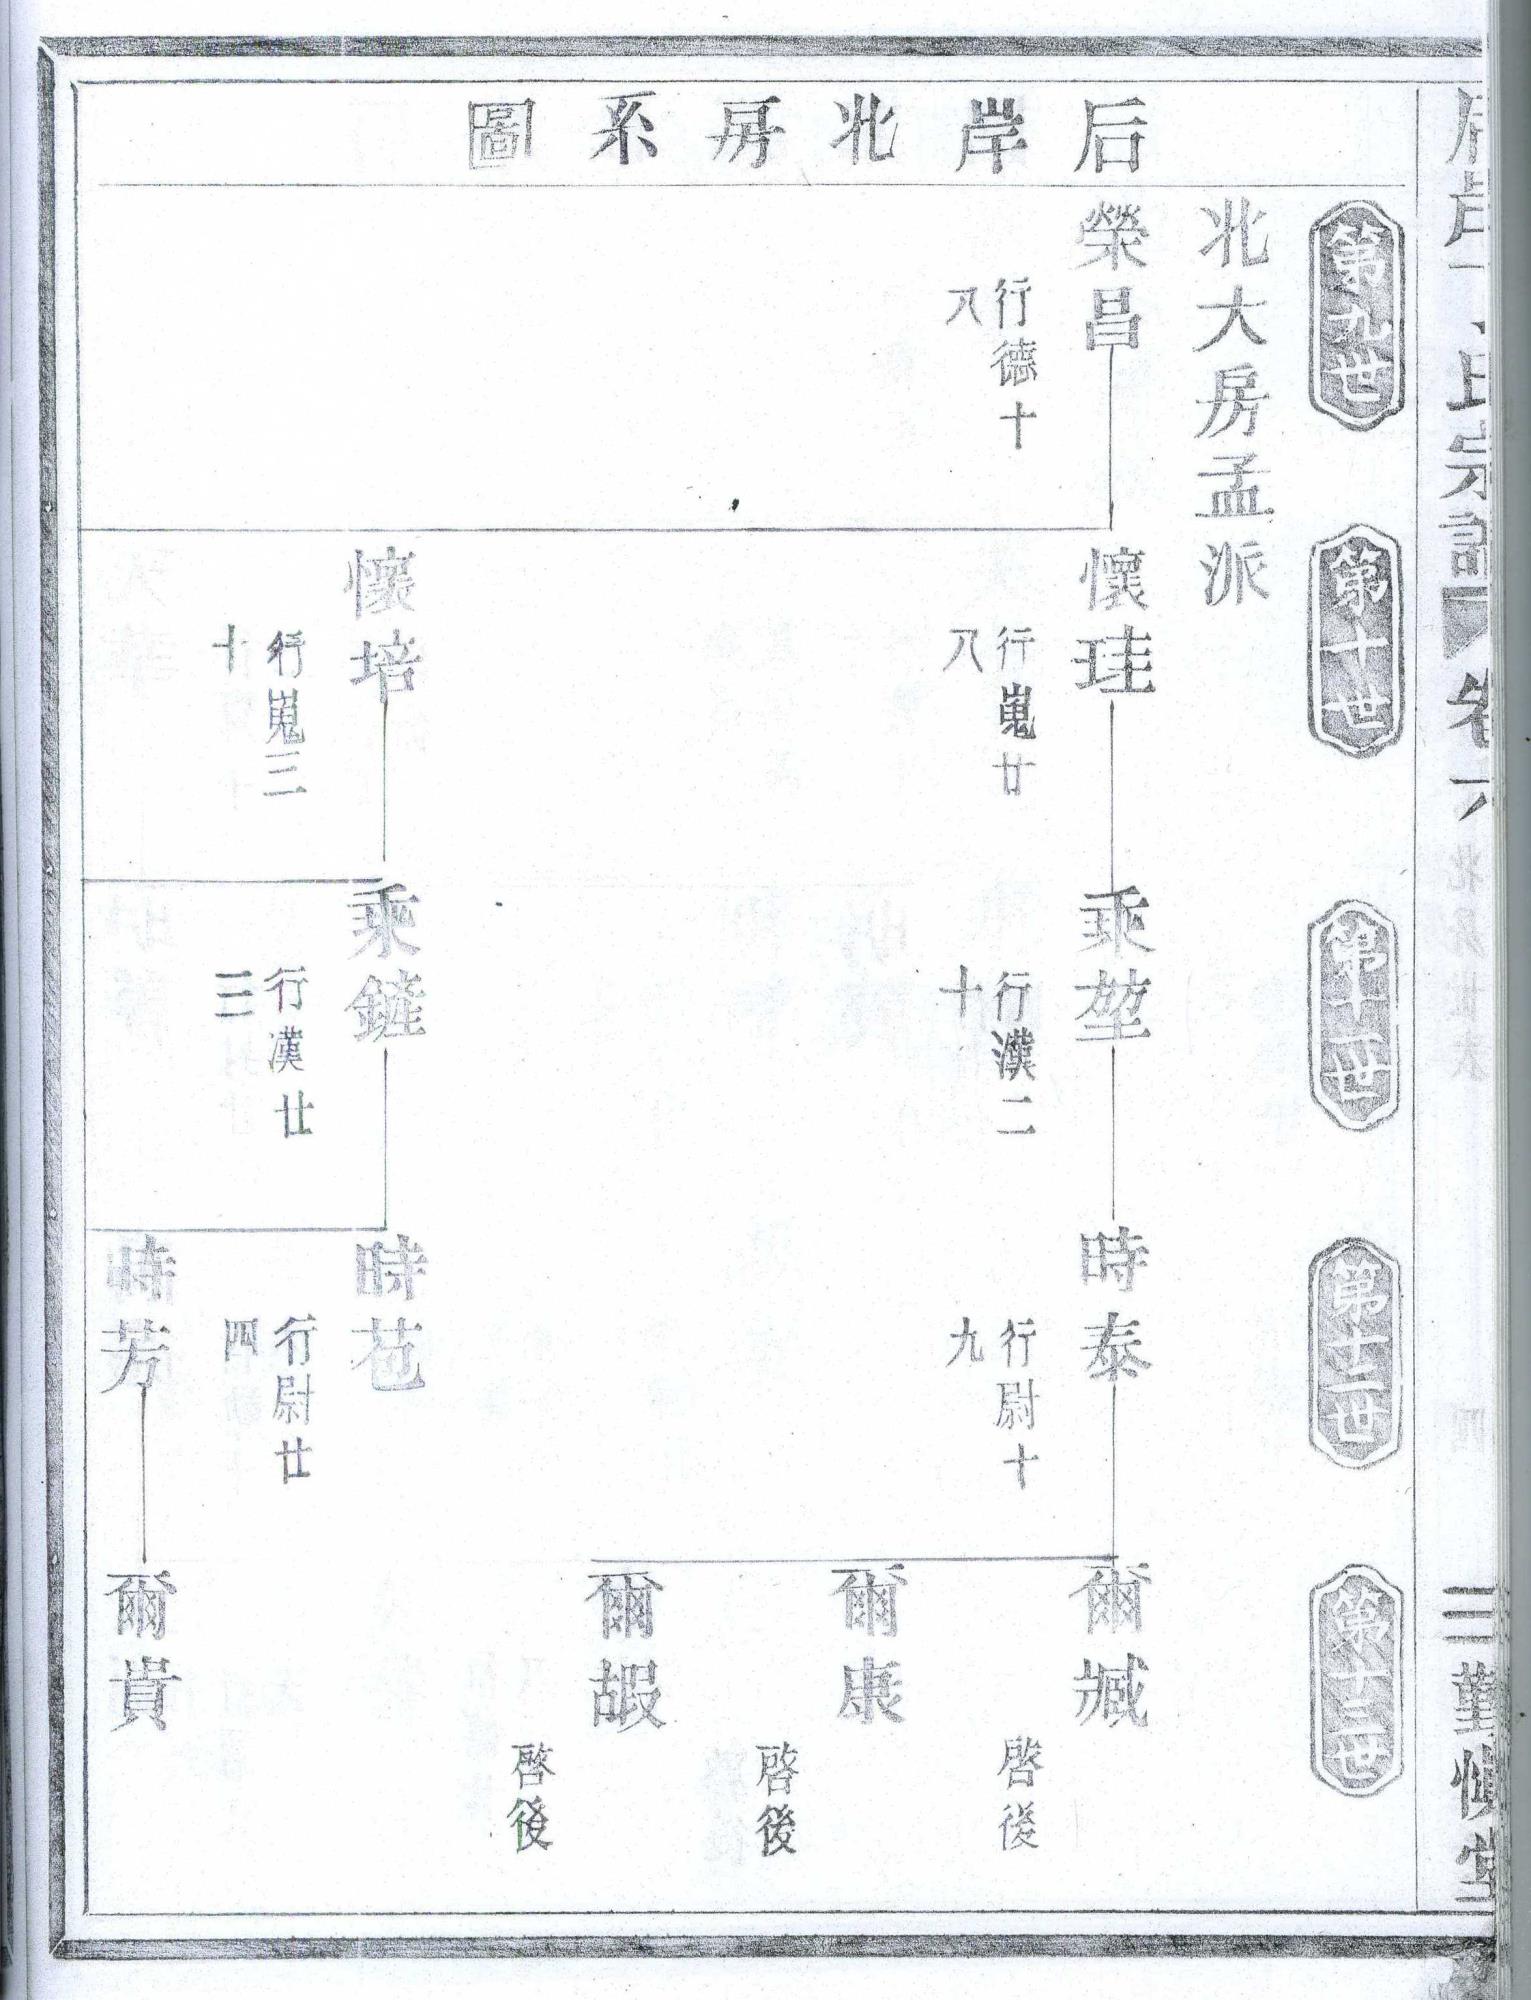 后岸北房系圖
第九世
第十世
第十一世
第十二世
第十三世
北大房孟派
榮昌
行德十
八
懷珪
行嵬廿
八
乘堃
行漢二
十
時泰
行尉十
九
爾臧
啓後
爾康
啓後
爾嘏
啓後
懷培
行嵬三
十
乘鏟
行漢廿
三
時苞
行尉廿
四
時芳
爾貴
氏宗譜
卷六
三
勤慎堂